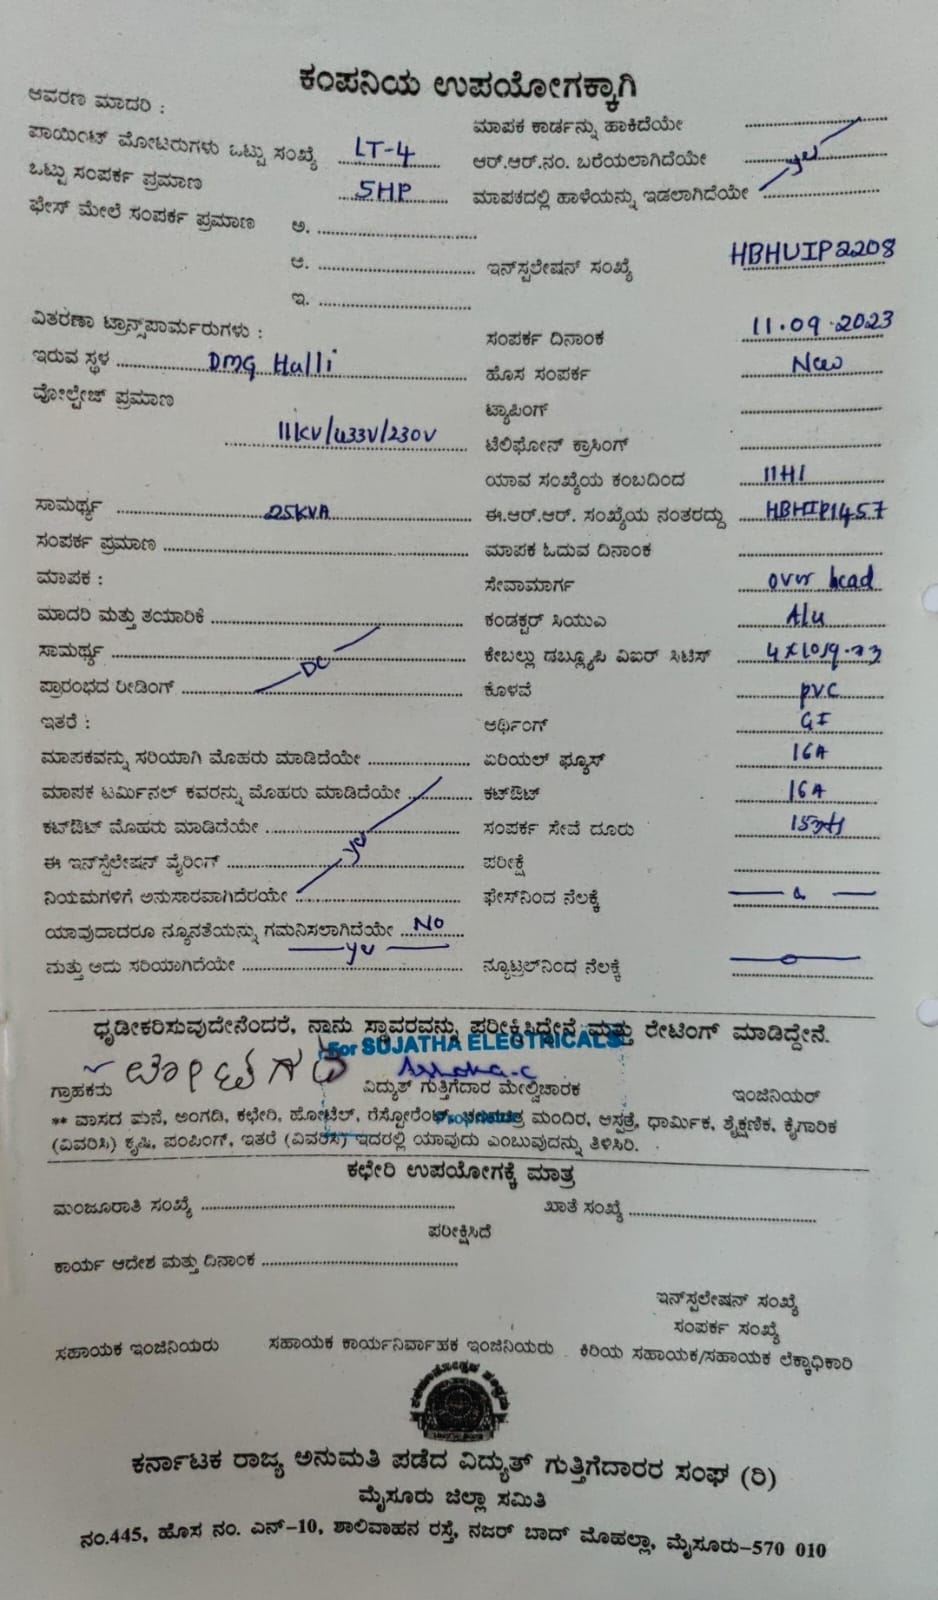 ಕಂಪನಿಯ ಉಪಯೋಗಕ್ಕಾಗಿ
ಆವರಣ ಮಾದರಿ :
ಮಾಪಕ ಕಾರ್ಡನ್ನು ಹಾಕಿದೆಯೇ
ಪಾಯಿಂಟ್ ಮೋಟರುಗಳು ಒಟ್ಟು ಸಂಖ್ಯೆ LT-4
ಆರ್.ಆರ್.ನಂ. ಬರೆಯಲಾಗಿದೆಯೇ yes
ಒಟ್ಟು ಸಂಪರ್ಕ ಪ್ರಮಾಣ 5HP
ಮಾಪಕದಲ್ಲಿ ಹಾಳೆಯನ್ನು ಇಡಲಾಗಿದೆಯೇ
ಫೇಸ್ ಮೇಲೆ ಸಂಪರ್ಕ ಪ್ರಮಾಣ ಅ.
ಆ. ಇನ್‌ಸ್ಟಲೇಷನ್ ಸಂಖ್ಯೆ HBHUIP2208
ಇ.
ವಿತರಣಾ ಟ್ರಾನ್ಸ್‌ಪಾರ್ಮರುಗಳು : ಸಂಪರ್ಕ ದಿನಾಂಕ 11.09.2023
ಇರುವ ಸ್ಥಳ DMG Halli ಹೊಸ ಸಂಪರ್ಕ New
ವೋಲ್ಟೇಜ್ ಪ್ರಮಾಣ ಟ್ಯಾಪಿಂಗ್
11KV/433V/230V ಟೆಲಿಫೋನ್ ಕ್ರಾಸಿಂಗ್
ಯಾವ ಸಂಖ್ಯೆಯ ಕಂಬದಿಂದ 11H1
ಸಾಮರ್ಥ್ಯ 25KVA ಈ.ಆರ್.ಆರ್. ಸಂಖ್ಯೆಯ ನಂತರದ್ದು HBHIP1457
ಸಂಪರ್ಕ ಪ್ರಮಾಣ ಮಾಪಕ ಓದುವ ದಿನಾಂಕ
ಮಾಪಕ : ಸೇವಾಮಾರ್ಗ over head
ಮಾದರಿ ಮತ್ತು ತಯಾರಿಕೆ ಕಂಡಕ್ಟರ್ ಸಿಯುಎ Alu
ಸಾಮರ್ಥ್ಯ DC ಕೇಬಲ್ಲು ಡಬ್ಲ್ಯೂಪಿ ವಿಐರ್ ಸಿಟಿಸ್
ಪ್ರಾರಂಭದ ರೀಡಿಂಗ್ ಕೊಳವೆ pvc
ಇತರೆ : ಆರ್ಥಿಂಗ್ GI
ಮಾಪಕವನ್ನು ಸರಿಯಾಗಿ ಮೊಹರು ಮಾಡಿದೆಯೇ ಏರಿಯಲ್ ಫ್ಯೂಸ್ 16A
ಮಾಪಕ ಟರ್ಮಿನಲ್ ಕವರನ್ನು ಮೊಹರು ಮಾಡಿದೆಯೇ ಕಟ್‌ಔಟ್ 16A
ಕಟ್‌ಔಟ್ ಮೊಹರು ಮಾಡಿದೆಯೇ yes ಸಂಪರ್ಕ ಸೇವೆ ದೂರು
ಈ ಇನ್‌ಸ್ಟೆಲೇಷನ್ ವೈರಿಂಗ್ ಪರೀಕ್ಷೆ
ನಿಯಮಗಳಿಗೆ ಅನುಸಾರವಾಗಿದೆರಯೇ ಫೇಸ್‌ನಿಂದ ನೆಲಕ್ಕೆ
ಯಾವುದಾದರೂ ನ್ಯೂನತೆಯನ್ನು ಗಮನಿಸಲಾಗಿದೆಯೇ No
ಮತ್ತು ಅದು ಸರಿಯಾಗಿದೆಯೇ yes ನ್ಯೂಟ್ರಲ್‌ನಿಂದ ನೆಲಕ್ಕೆ
ಧೃಡೀಕರಿಸುವುದೇನೆಂದರೆ, ನಾನು ಸ್ಥಾವರವನ್ನು ಪರೀಕ್ಷಿಸಿದ್ದೇನೆ ಮತ್ತು ರೇಟಿಂಗ್ ಮಾಡಿದ್ದೇನೆ.
For SUJATHA ELECTRICALS
ಗ್ರಾಹಕರು ವಿದ್ಯುತ್ ಗುತ್ತಿಗೆದಾರ ಮೇಲ್ವಿಚಾರಕ ಇಂಜಿನಿಯರ್
** ವಾಸದ ಮನೆ, ಅಂಗಡಿ, ಕಛೇರಿ, ಹೋಟೆಲ್, ರೆಸ್ಟೋರೆಂಟ್, ಮಂದಿರ, ಆಸ್ಪತ್ರೆ, ಧಾರ್ಮಿಕ, ಶೈಕ್ಷಣಿಕ, ಕೈಗಾರಿಕ
(ವಿವರಿಸಿ) ಕೃಷಿ, ಪಂಪಿಂಗ್, ಇತರೆ (ವಿವರಿಸಿ) ಇದರಲ್ಲಿ ಯಾವುದು ಎಂಬುವುದನ್ನು ತಿಳಿಸಿರಿ.
ಕಛೇರಿ ಉಪಯೋಗಕ್ಕೆ ಮಾತ್ರ
ಮಂಜೂರಾತಿ ಸಂಖ್ಯೆ ಖಾತೆ ಸಂಖ್ಯೆ
ಪರೀಕ್ಷಿಸಿದೆ
ಕಾರ್ಯ ಆದೇಶ ಮತ್ತು ದಿನಾಂಕ
ಇನ್‌ಸ್ಟಲೇಷನ್ ಸಂಖ್ಯೆ
ಸಂಪರ್ಕ ಸಂಖ್ಯೆ
ಸಹಾಯಕ ಇಂಜಿನಿಯರು ಸಹಾಯಕ ಕಾರ್ಯನಿರ್ವಾಹಕ ಇಂಜಿನಿಯರು ಕಿರಿಯ ಸಹಾಯಕ/ಸಹಾಯಕ ಲೆಕ್ಕಾಧಿಕಾರಿ
ಕರ್ನಾಟಕ ರಾಜ್ಯ ಅನುಮತಿ ಪಡೆದ ವಿದ್ಯುತ್ ಗುತ್ತಿಗೆದಾರರ ಸಂಘ (ರಿ)
ಮೈಸೂರು ಜಿಲ್ಲಾ ಸಮಿತಿ
ನಂ.445, ಹೊಸ ನಂ. ಎನ್-10, ಶಾಲಿವಾಹನ ರಸ್ತೆ, ನಜರ್ ಬಾದ್ ಮೊಹಲ್ಲಾ, ಮೈಸೂರು-570 010